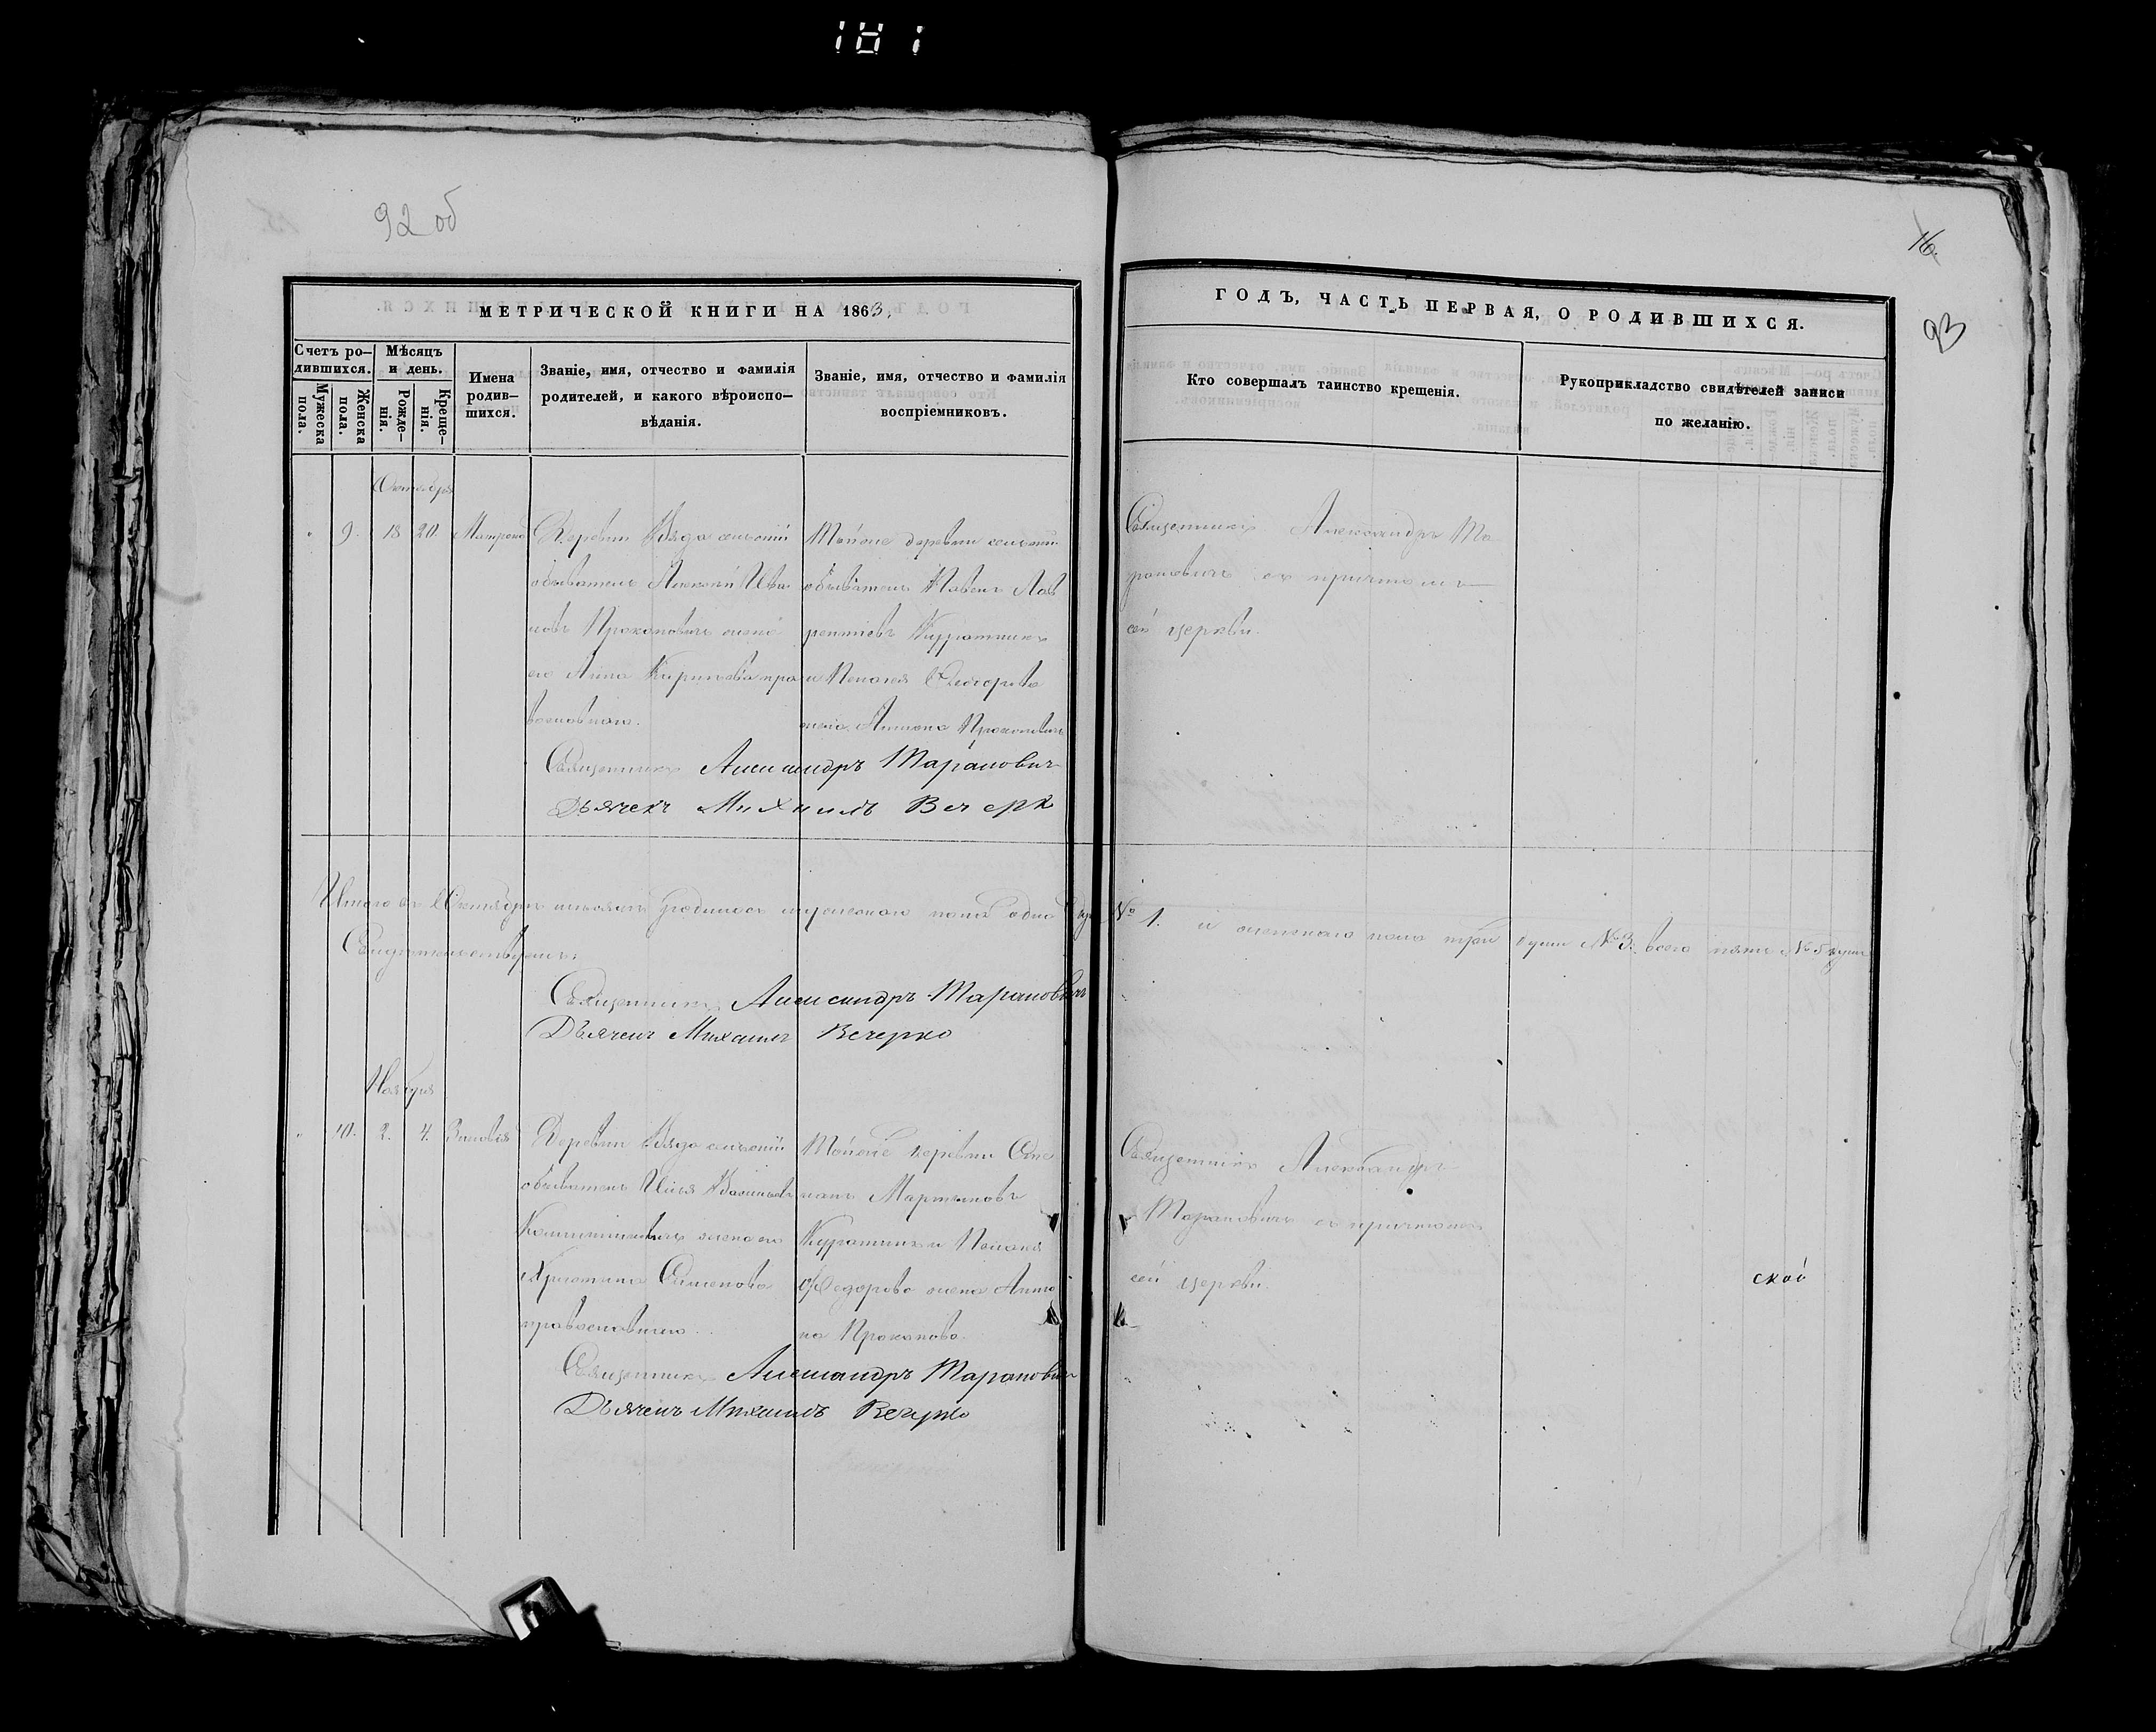 181
92 об
16.
93
МЕТРИЧЕСКОЙ КНИГИ НА 1863.
Счетъ ро–
дившихся.
Мужеска
пола.
Женска
пола.
Мѣсяцъ
и день.
Рожде–
нія.
Креще–
нія.
Имена
родив–
шихся.
Званіе, имя, отчество и фамилія
родителей, и какого вѣроиспо–
вѣданія.
Званіе, имя, отчество и фамилія
воспріемниковъ.
ГОДЪ, ЧАСТЬ ПЕРВАЯ, О РОДИВШИХСЯ.
Кто совершалъ таинство крещенія.
Рукоприкладство свидѣтелей записи
по желанію.
Октября
" 9. 18 20. Матрона
Деревни сельскій
обыватель Алексѣй Ива
новъ Прокоповичъ жена
его Анна Кирилова пра
вославнаго.
Тойже деревни сельскій
обыватель Павелъ Лав
рентіевъ
и Пелагея Ѳеодорова
жена Антона Прокоповича
Священникъ Александръ Та
рановичъ съ причтомъ
сей церкви.
Священникъ Александръ Тарановичъ
Дьячекъ Михаилъ Вечерко
Итого въ Октябрѣ мѣсяцѣ родилось мужескаго пола одна № 1. и женскаго пола три души № 3. всего пять № 5 душъ
Свидѣтельствуемъ:
Священникъ Александръ Тарановичъ
Дьячекъ Михаилъ Вечерко
Ноября
" 10. 2. 4. Зиновія
Деревни сельскій
обыватель Илья Васильевъ
жена его
Христина Семенова
православнаго.
Тойже деревни Сте
панъ Мартиновъ
и Пелагея
Ѳедорова жена Анто
на Прокопова.
Священникъ Александръ
Тарановичъ съ причтомъ
сей церкви.
ской
Священникъ Александръ Тарановичъ
Дьячекъ Михаилъ Вечерко